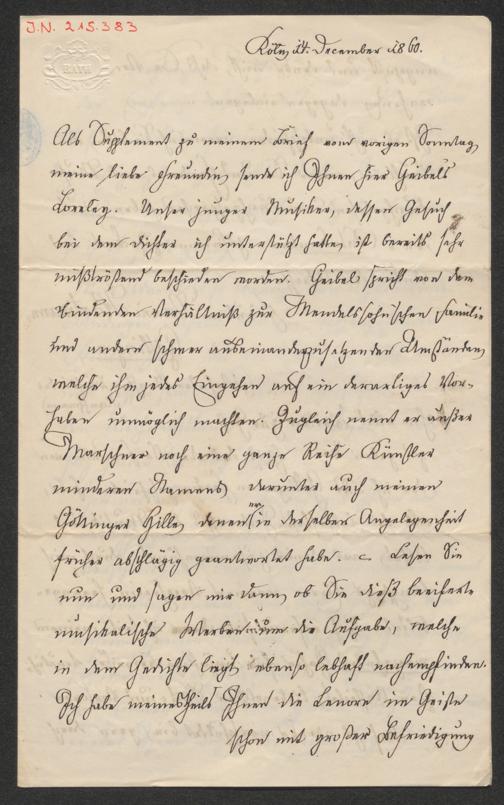 I.N. 215.383
BATH
Köln, 14. December 1860.
Als Supplement zu meinem Brief vom vorigen Sonntag,
meine liebe Freundin, sende ich Ihnen hier Geibels
Loreley. Unser junger Musiker, dessen Gesuch
bei dem Dichter ich unterstützt hatte, ist bereits sehr
mißtröstend beschieden worden. Geibel spricht von dem
bindenden Verhältniß zur Mendelssohn'schen Familie
und andern schwer auseinanderzusetzenden Umständen,
welche ihm jedes Eingehen auf ein derartiges Vor-
haben unmöglich machten. Zugleich nennt er außer
Marschner noch eine ganze Reihe Künstler
minderen Namens, darunter auch meinen
Göttinger Hille, denen er in derselben Angelegenheit
früher abschlägig geantwortet habe. – Lesen Sie
nun und sagen mir dann, ob Sie dieß beeiferte
musikalische Werben um die Aufgabe, welche
in dem Gedichte liegt, ebenso lebhaft nachempfinden.
Ich habe meinestheils Ihnen die Lenore im Geiste
schon mit großer Befriedigung